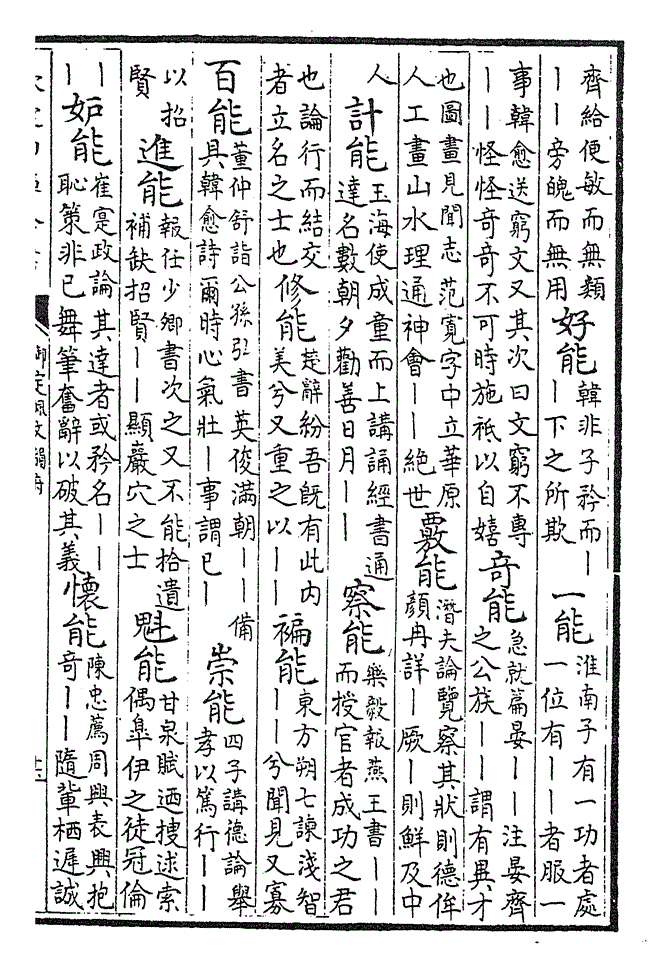 齊給便敏而無類
——旁魄而無用
好能
韓非子矜而—
—下之所欺
一能
淮南子有一功者處
一位有——者服一
事韓愈送窮文又其次曰文窮不專
——怪怪奇奇不可時施祇以自嬉
奇能
急就篇晏——注晏齊
之公族——謂有異才
也圖畫見聞志范寛字中立華原
人工畫山水理通神會——絶世
覈能
潛夫論覽察其狀則德侔
顏冉詳—厥—則鮮及中
人
計能
玉海使成童而上講誦經書通
達名數朝夕勸善日月——
察能
樂毅報燕王書——
而授官者成功之君
也論行而結交
者立名之士也
修能
楚辭紛吾既有此内
美兮又重之以——
褊能
東方朔七諫淺智
——兮聞見又寡
百能
董仲舒詣公孫弘書英俊滿朝——備
具韓愈詩爾時心氣壯—事謂已—
崇能
四子講德論舉
孝以篤行——
以招
賢
進能
報任少卿書次之又不能拾遺
補缺招賢——顯巖穴之士
魁能
甘泉賦迺捜逑索
偶臯伊之徒冠倫
—
—
妒能
崔寔政論其達者或矜名——
恥策非已舞筆奮辭以破其義
懷能
陳忠薦周興表興抱
奇——隨輩栖遲誠
御定佩文韻府